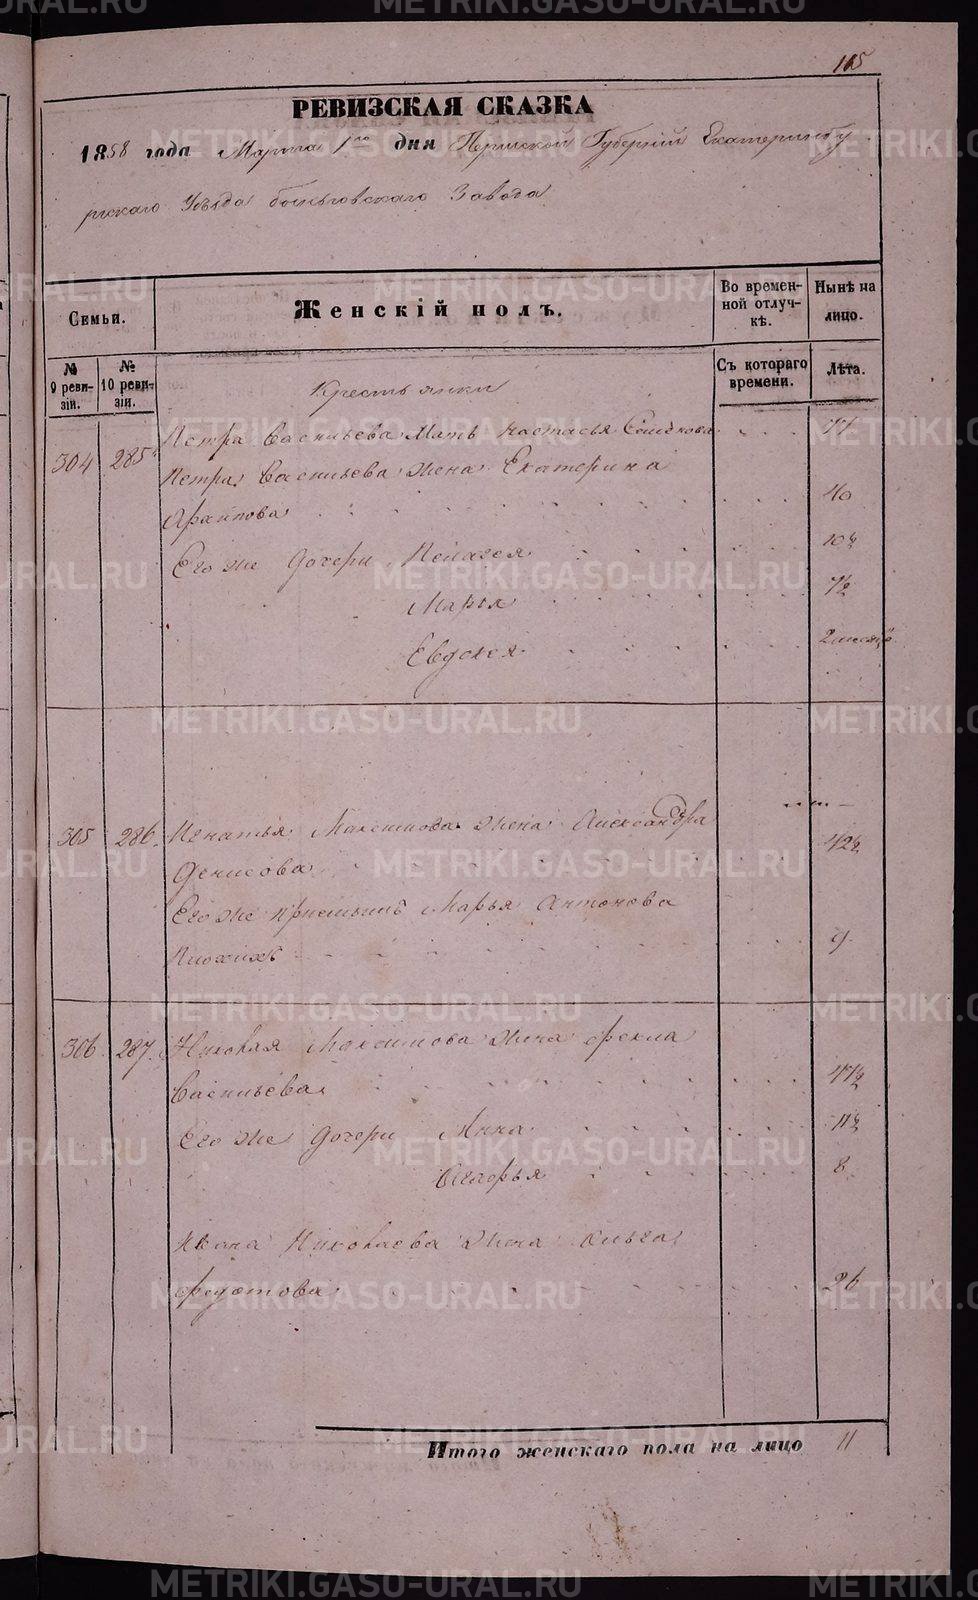 165
РЕВИЗСКАЯ СКАЗКА
1858 года Марта 1го дня Пермской Губернии Екатеринбу
ргскаго Уезда Заводa
Семьи.
Женскій полъ.
Во времен-
ной отлуч-
кѣ.
Нынѣ на
лицо.
№
9 реви-
зіи.
№
10 реви-
зіи.
Съ котораго
времени.
Лѣта.
Крестьянки
304 285 Петра Васильева Мать Настасья Семенова
Петра Васильева жена Екатерина
Архипова 40
Его же дочери Пелагея 10½
Марья 7½
Евдокея
305 286. Игнатья Максимова жена Александра
Денисова 42½
Его же приемышъ Марья Антонова
9
306. 287. Николая Максимова жена Фекла
Васильева 47½
Его же дочери Анна 11½
8
Ивана Николаева жена Ольга
Федотова 26
Итого женскаго пола на лицо 11
METRIKI.GASO-URAL.RU